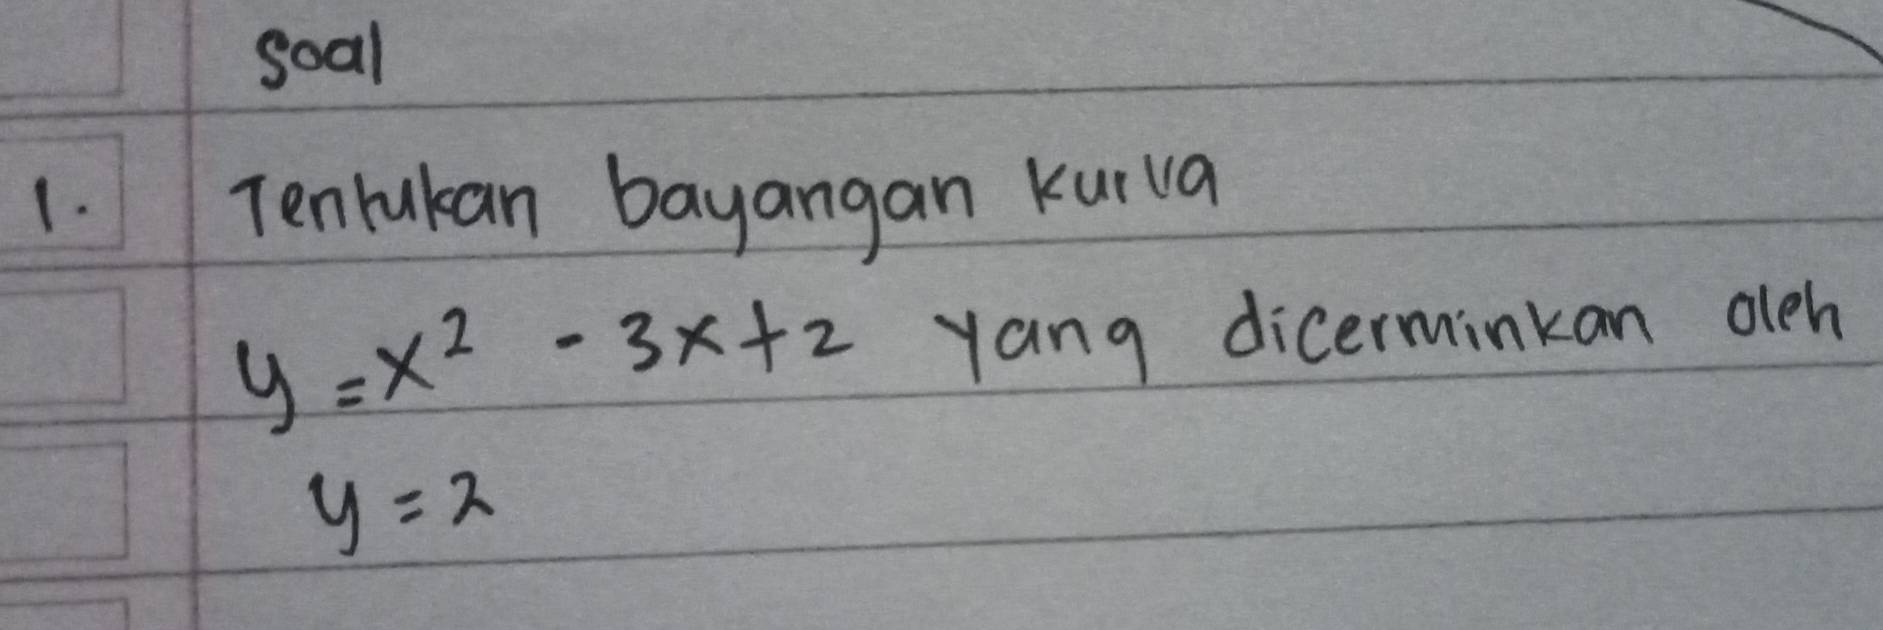 Soal
1. Tentukan bayangan kurva
y = x² - 3x + 2 yang dicerminkan oleh
y = 2